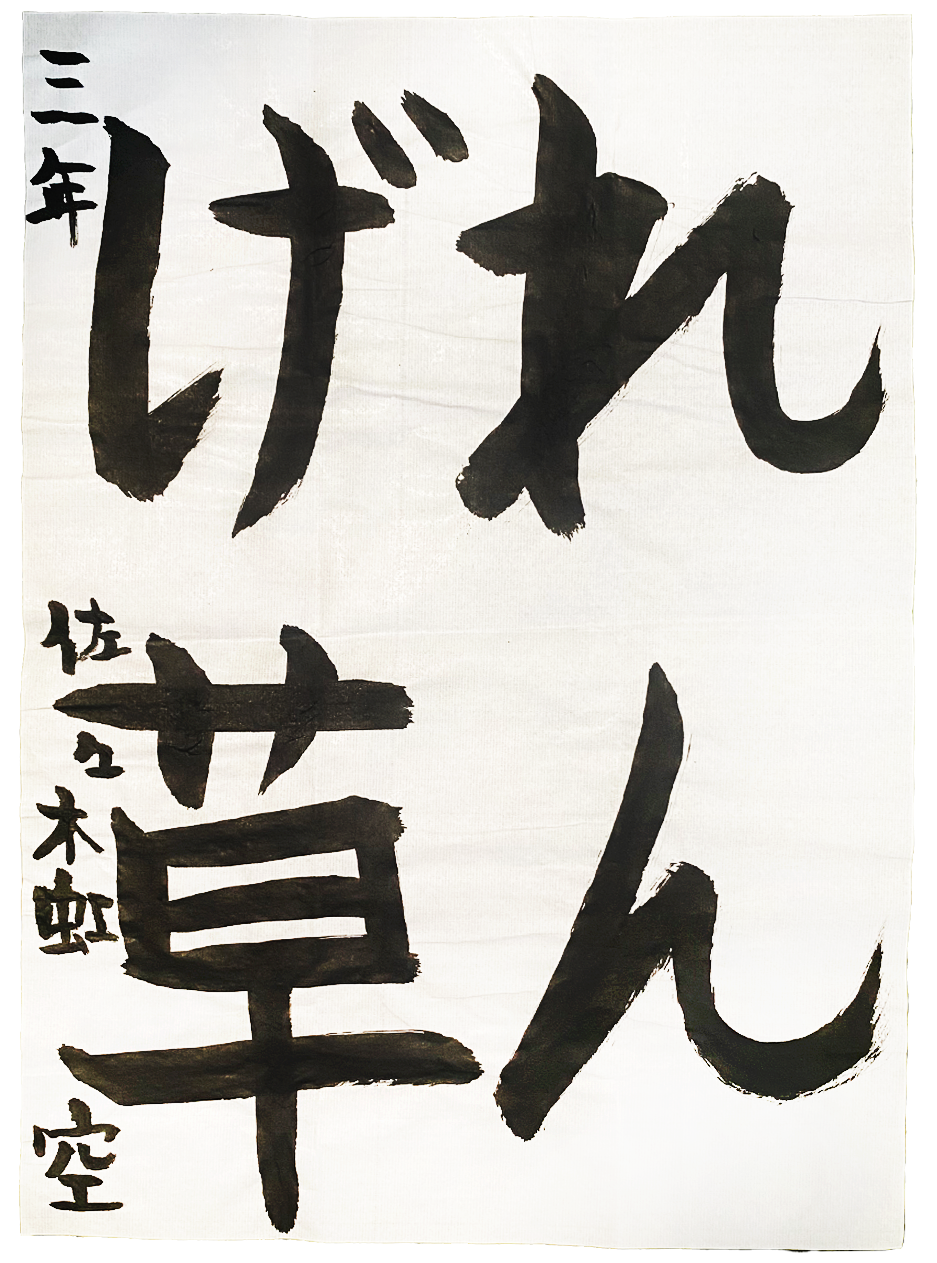 れん
げ草
三年 佐々木虹空